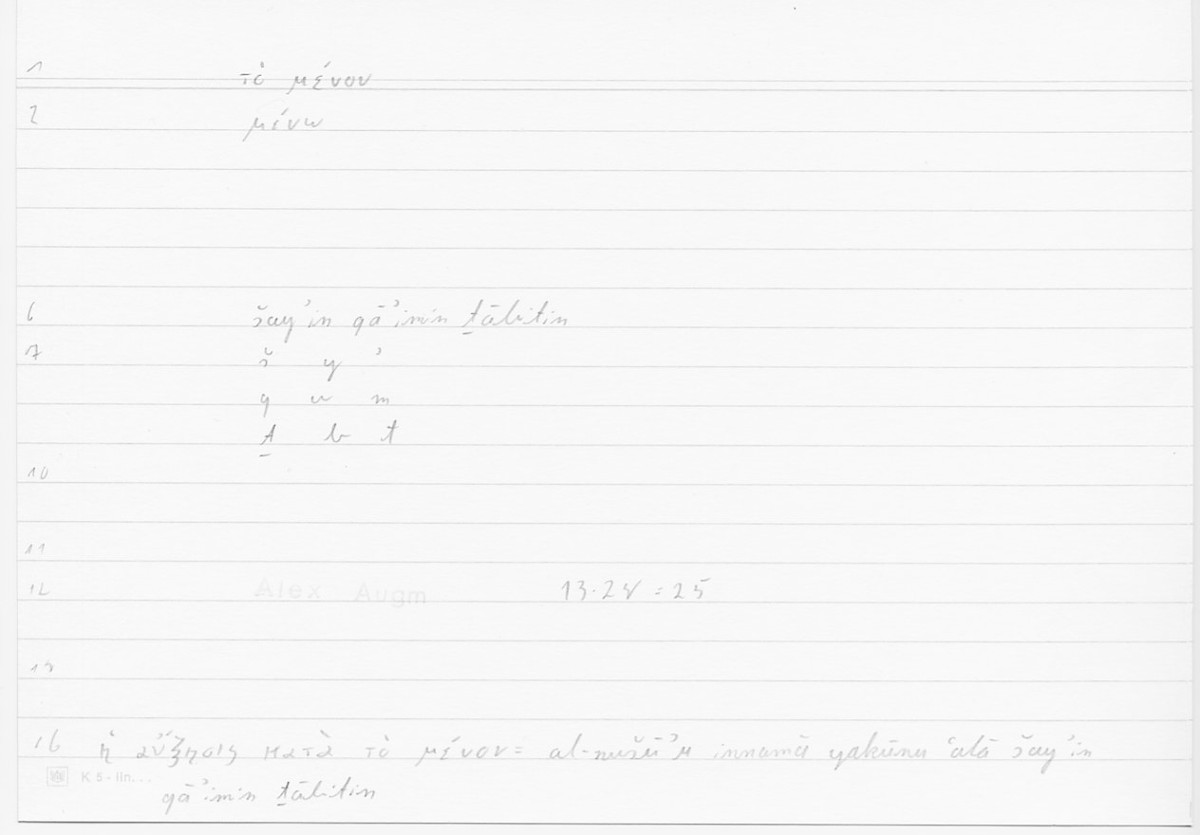 1 τὸ μένον
2 μένω
6 šayʾin qāʾimin ṯābitin
7 š y ʾ
q w m
ṯ b t
10
11
12 Alex Augm 13.28 = 25
16 ἡ αὔξησις κατὰ τὸ μένον = al-nušūʾu innamā yakūnu ʿalā šayʾin
K 5 - lin...
qāʾimin ṯābitin